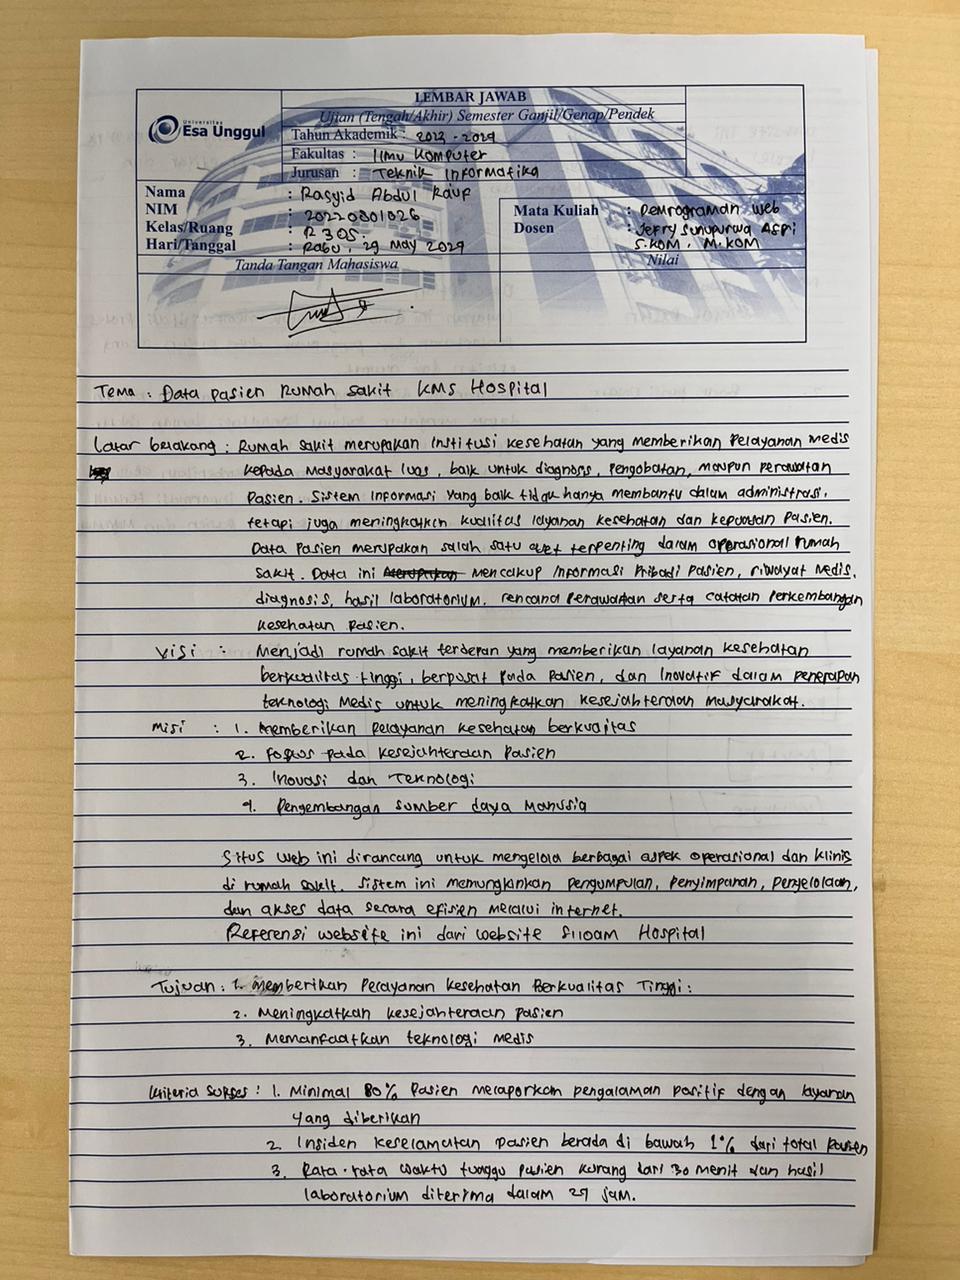 LEMBAR JAWAB
Ujian (Tengah/Akhir) Semester Ganjil/Genap/Pendek
Universitas
Esa Unggul
Tahun Akademik : 2023 - 2024
Fakultas : Ilmu Komputer
Jurusan : Teknik Informatika
Nama : Rasyid Abdul Rauf
NIM : 20220801026
Kelas/Ruang : R 305.
Hari/Tanggal : Rabu, 29 May 2024
Mata Kuliah : Pemrograman Web
Dosen : Jefry Sunupurwa Asri
S.KOM, M.KOM
Tanda Tangan Mahasiswa
Nilai
Tema : Data Pasien Rumah Sakit KMS Hospital
Latar belakang : Rumah sakit merupakan Institusi kesehatan yang memberikan Pelayanan medis
kepada masyarakat luas, baik untuk diagnosis, pengobatan, maupun perawatan
Pasien. Sistem informasi yang baik tidak hanya membantu dalam administrasi,
tetapi juga meningkatkan kualitas layanan kesehatan dan kepuasan pasien.
Data Pasien merupakan salah satu aset terpenting dalam operasional rumah
sakit. Data ini merupakan mencakup informasi pribadi pasien, riwayat medis,
diagnosis, hasil laboratorium, rencana perawatan serta catatan perkembangan
kesehatan pasien.
Visi : Menjadi rumah sakit terdepan yang memberikan layanan kesehatan
berkualitas tinggi, berpusat pada pasien, dan inovatif dalam penerapan
teknologi medis untuk meningkatkan kesejahteraan masyarakat.
Misi : 1. Memberikan pelayanan kesehatan berkualitas
2. Fokus pada kesejahteraan pasien
3. Inovasi dan Teknologi
4. Pengembangan sumber daya manusia
Situs web ini dirancang untuk mengelola berbagai aspek operasional dan klinis
di rumah sakit. Sistem ini memungkinkan pengumpulan, penyimpanan, pengelolaan,
dan akses data secara efisien melalui internet.
Referensi website ini dari website Siloam Hospital
Tujuan : 1. Memberikan Pelayanan kesehatan Berkualitas Tinggi :
2. Meningkatkan kesejahteraan pasien
3. Memanfaatkan teknologi medis
Kriteria Sukses : 1. Minimal 80% Pasien melaporkan pengalaman positif dengan layanan
yang diberikan
2. Insiden keselamatan pasien berada di bawah 1% dari total pasien
3. Rata-rata waktu tunggu pasien kurang dari 30 menit dan hasil
laboratorium diterima dalam 24 jam.